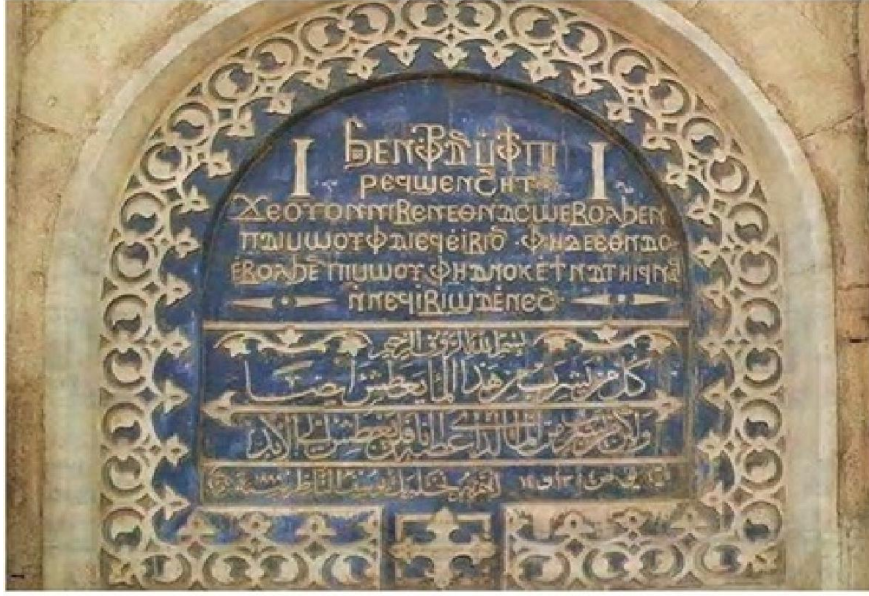 ϧⲉⲛ
ⲣⲉϥϣⲉⲛϩⲏⲧ
ϫⲉⲟⲩⲟⲛⲛⲓⲃⲉⲛⲉⲑⲛⲁⲥⲱⲉⲃⲟⲗϧⲉⲛ
ⲡⲁⲓⲙⲱⲟⲩⲫⲁⲓⲉϥⲉ̀ⲓⲃⲓⲟ ⲫⲏⲇⲉⲉⲑⲛⲁⲥ
ⲉ̀ⲃⲟⲗϧⲉⲡⲓⲙⲱⲟⲩ ⲫⲏⲁⲛⲟⲕⲉ̀ⲧⲛⲁⲧⲏⲓϥⲛⲁ
ⲛ̀ⲛⲉϥⲓⲃⲓϣⲁⲉ̀ⲛⲉϩ
بسم الله الرؤوف الرحيم
كل من يشرب من هذا الماء يعطش ايضا
ولكن من يشرب من الماء الذي اعطيه انا فلن يعطش الى الابد
١٣ و ١٤ الناظر سنة